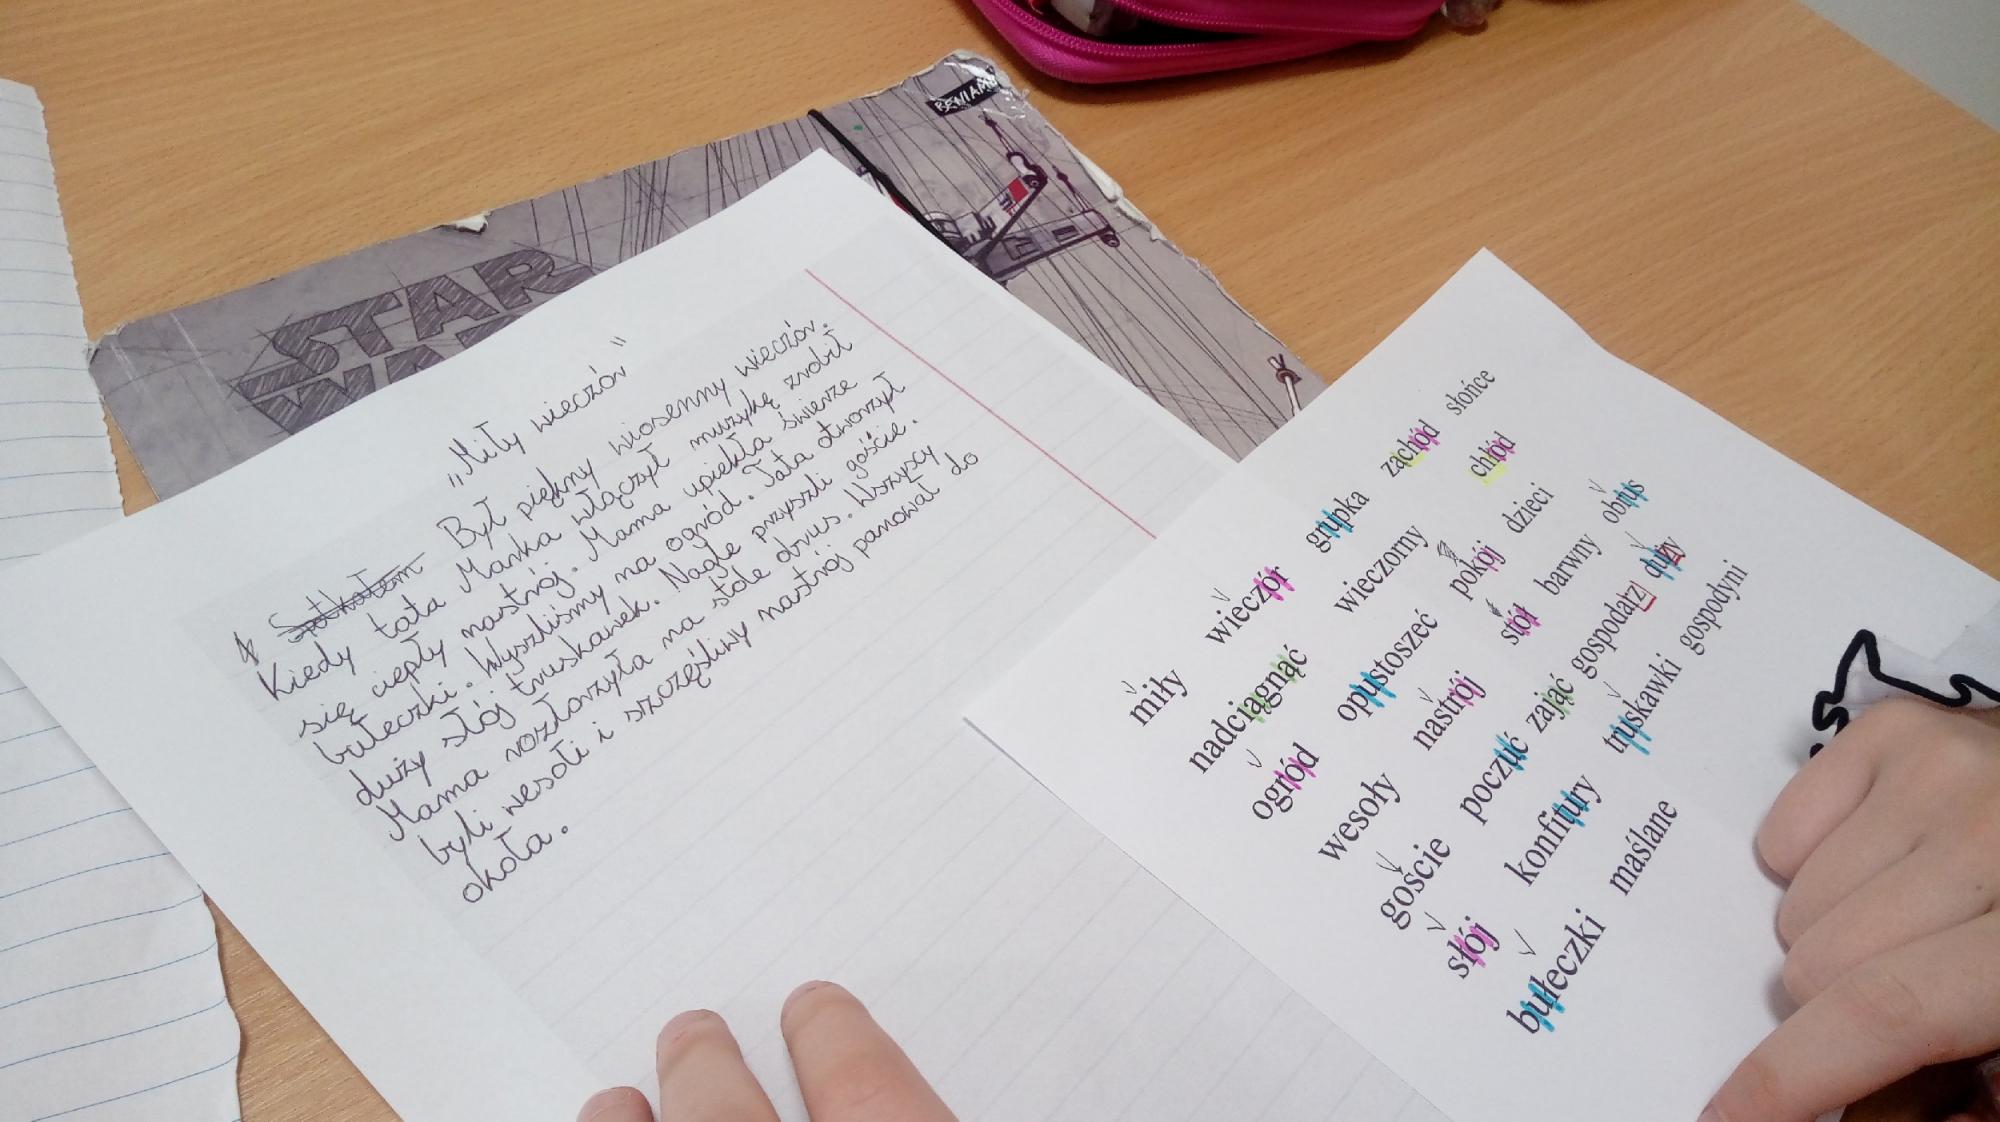 STAR
WARS
BENIAMIN
„Miły wieczór"
Spotkałem Był piękny wiosenny wieczór.
Kiedy tata Marka włączył muzykę zrobił
się ciepły nastrój. Mama upiekła świerze
bułeczki. Wyszliśmy na ogród. Tata otworzył
duży słój truskawek. Nagle przyszli goście.
Mama rozłorzyła na stole obrus. Wszyscy
byli wesołi i szczęśliwy nastrój panował do
okoła.
miły wieczór grupka zachód słońce
nadciągnąć wieczorny chłód
ogród opustoszeć pokój dzieci
wesoły nastrój stół barwny obrus
goście poczuć zając gospodarz duży
słój konfitury truskawki gospodyni
bułeczki maślane